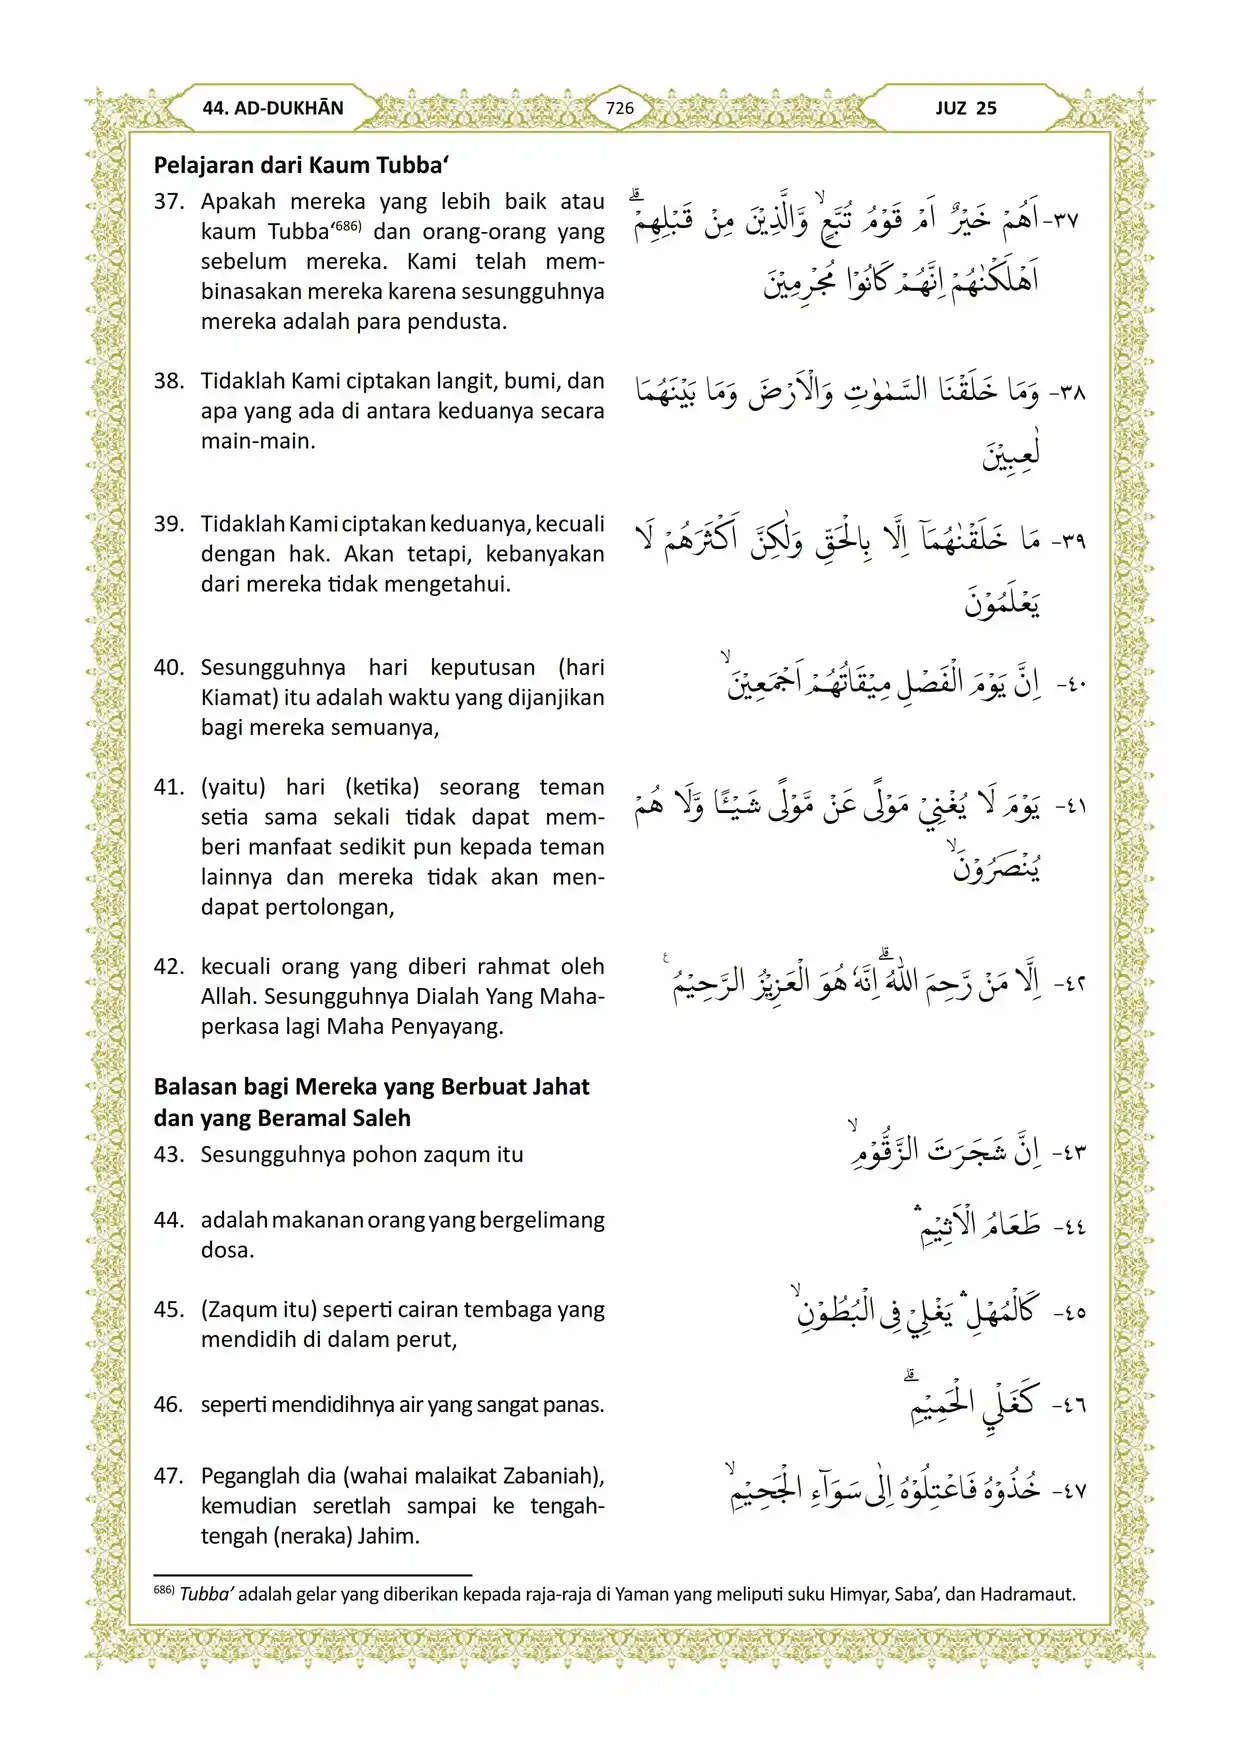 44. AD-DUKHĀN
726
JUZ 25
Pelajaran dari Kaum Tubba‘
37. Apakah mereka yang lebih baik atau
kaum Tubba‘686) dan orang-orang yang
sebelum mereka. Kami telah mem-
binasakan mereka karena sesungguhnya
mereka adalah para pendusta.
٣٧- اَهُمْ خَيْرٌ اَمْ قَوْمُ تُبَّعٍۙ وَّالَّذِيْنَ مِنْ قَبْلِهِمْۗ
اَهْلَكْنٰهُمْ اِنَّهُمْ كَانُوْا مُجْرِمِيْنَ
38. Tidaklah Kami ciptakan langit, bumi, dan
apa yang ada di antara keduanya secara
main-main.
٣٨- وَمَا خَلَقْنَا السَّمٰوٰتِ وَالْاَرْضَ وَمَا بَيْنَهُمَا
لٰعِبِيْنَ
39. Tidaklah Kami ciptakan keduanya, kecuali
dengan hak. Akan tetapi, kebanyakan
dari mereka tidak mengetahui.
٣٩- مَا خَلَقْنٰهُمَآ اِلَّا بِالْحَقِّ وَلٰكِنَّ اَكْثَرَهُمْ لَا
يَعْلَمُوْنَ
40. Sesungguhnya hari keputusan (hari
Kiamat) itu adalah waktu yang dijanjikan
bagi mereka semuanya,
٤٠- اِنَّ يَوْمَ الْفَصْلِ مِيْقَاتُهُمْ اَجْمَعِيْنَۙ
41. (yaitu) hari (ketika) seorang teman
setia sama sekali tidak dapat mem-
beri manfaat sedikit pun kepada teman
lainnya dan mereka tidak akan men-
dapat pertolongan,
٤١- يَوْمَ لَا يُغْنِيْ مَوْلًى عَنْ مَّوْلًى شَيْـًٔا وَّلَا هُمْ
يُنْصَرُوْنَۙ
42. kecuali orang yang diberi rahmat oleh
Allah. Sesungguhnya Dialah Yang Maha-
perkasa lagi Maha Penyayang.
٤٢- اِلَّا مَنْ رَّحِمَ اللّٰهُۗ اِنَّهٗ هُوَ الْعَزِيْزُ الرَّحِيْمُ ࣖ
Balasan bagi Mereka yang Berbuat Jahat
dan yang Beramal Saleh
43. Sesungguhnya pohon zaqum itu
٤٣- اِنَّ شَجَرَتَ الزَّقُّوْمِۙ
44. adalah makanan orang yang bergelimang
dosa.
٤٤- طَعَامُ الْاَثِيْمِ ۛ
45. (Zaqum itu) seperti cairan tembaga yang
mendidih di dalam perut,
٤٥- كَالْمُهْلِ ۛ يَغْلِيْ فِى الْبُطُوْنِۙ
46. seperti mendidihnya air yang sangat panas.
٤٦- كَغَلْيِ الْحَمِيْمِۗ
47. Peganglah dia (wahai malaikat Zabaniah),
kemudian seretlah sampai ke tengah-
tengah (neraka) Jahim.
٤٧- خُذُوْهُ فَاعْتِلُوْهُ اِلٰى سَوَاۤءِ الْجَحِيْمِۙ
686) Tubba’ adalah gelar yang diberikan kepada raja-raja di Yaman yang meliputi suku Himyar, Saba’, dan Hadramaut.